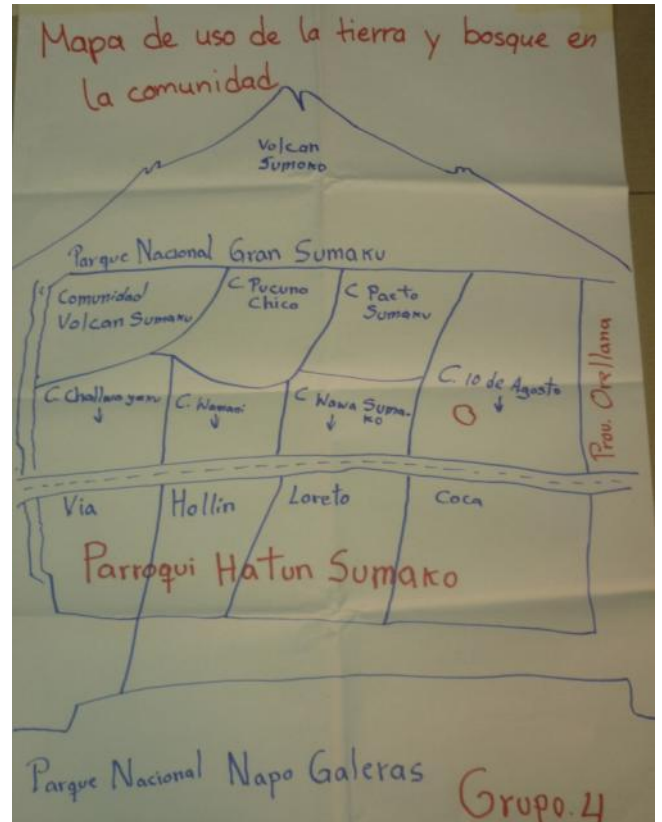 Mapa de uso de la tierra y bosque en
la comunidad
Volcan
Sumako
Parque Nacional Gran Sumaku
Comunidad
Volcan Sumaku
C Pucuno
Chico
C Pacto
Sumaku
C Challwayaku
C. Wamani
C Wawa Suma-
ko
C. 10 de Agosto
Prov. Orellana
Via Hollin Loreto Coca
Parroqui Hatun Sumako
Parque Nacional Napo Galeras
Grupo.4